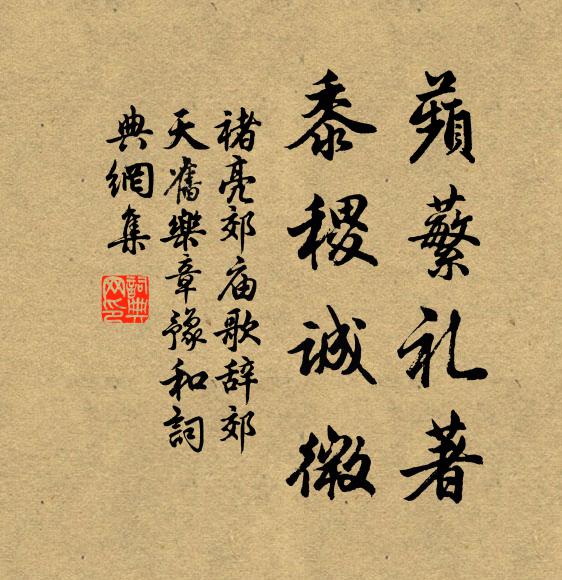 蘋蘩礼著
黍稷诚微
褚亮郊庙歌辞郊
天旧樂章豫和詞
典網集
詞典网印